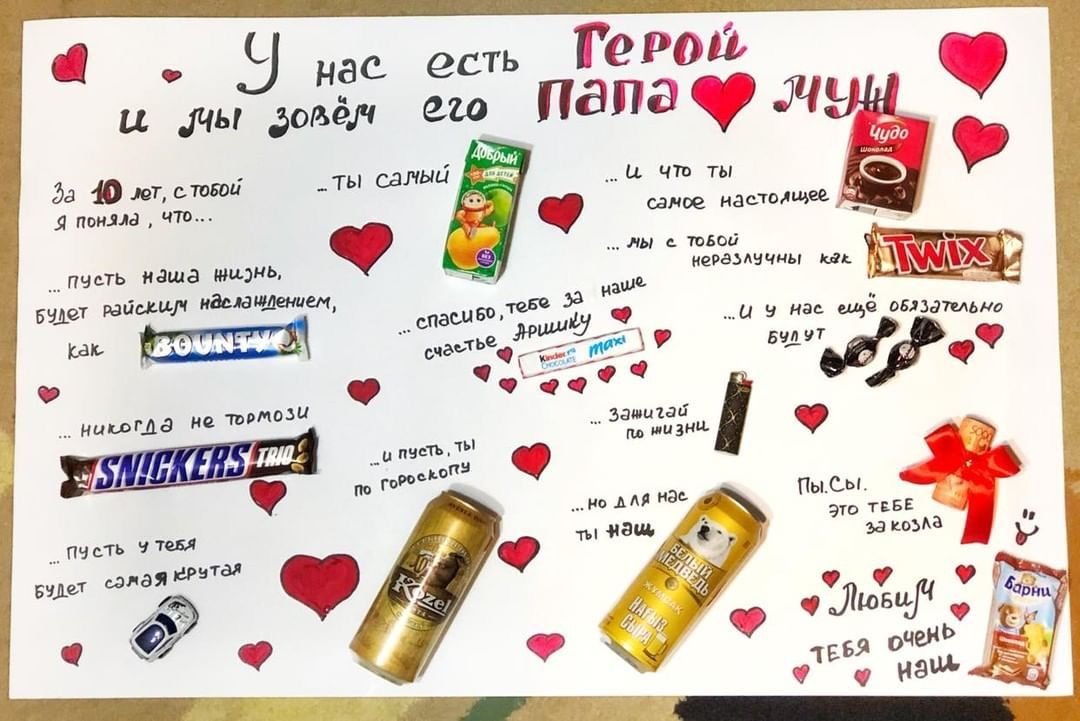 У нас есть Герой
и мы зовём его папа муж
За 10 лет, с тобой
я поняла, что...
...ты самый
Добрый
для детей
...и что ты
самое настоящее
Чудо
Шоколад
...мы с тобой
неразлучны как
TWIX
...пусть наша жизнь,
будет райским наслаждением,
как
BOUNTY
...спасибо, тебе за наше
счастье Аришку
Kinder
CHOCOLATE
maxi
...и у нас ещё обязательно
будут
...никогда не тормози
SNICKERS TRIO
...и пусть, ты
по гороскопу
Kozel
...Зажигай
по жизни
...но для нас
ты наш
БЕЛЫЙ
МЕДВЕДЬ
НАҒЫЗ
СЫРА
Пы.Сы.
это тебе
за козла
...пусть у тебя
будет самая крутая
Любим
тебя очень
наш
Барни